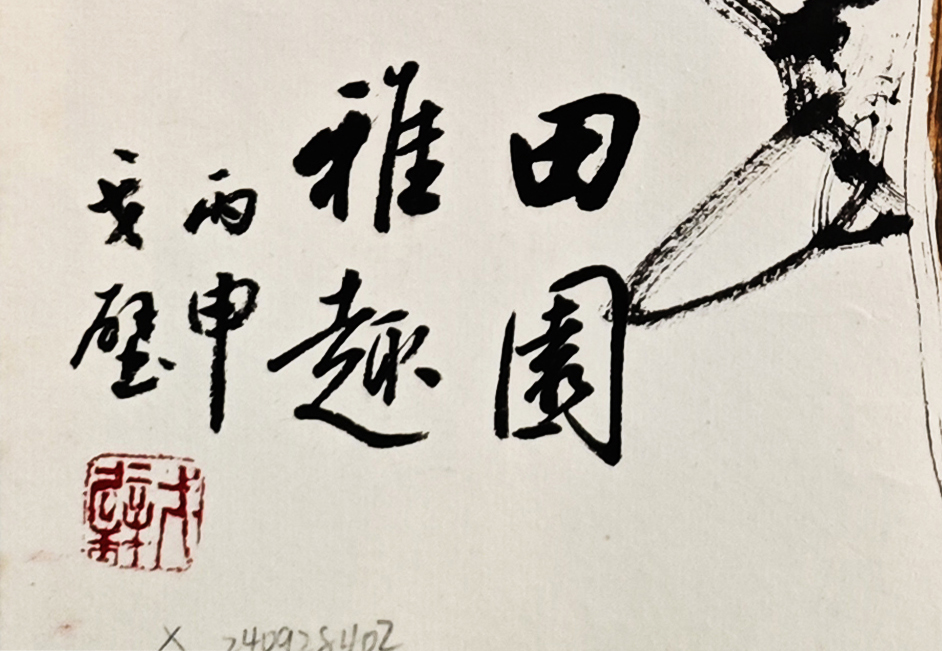 田園
雅趣
丙申
壁
X 240928402